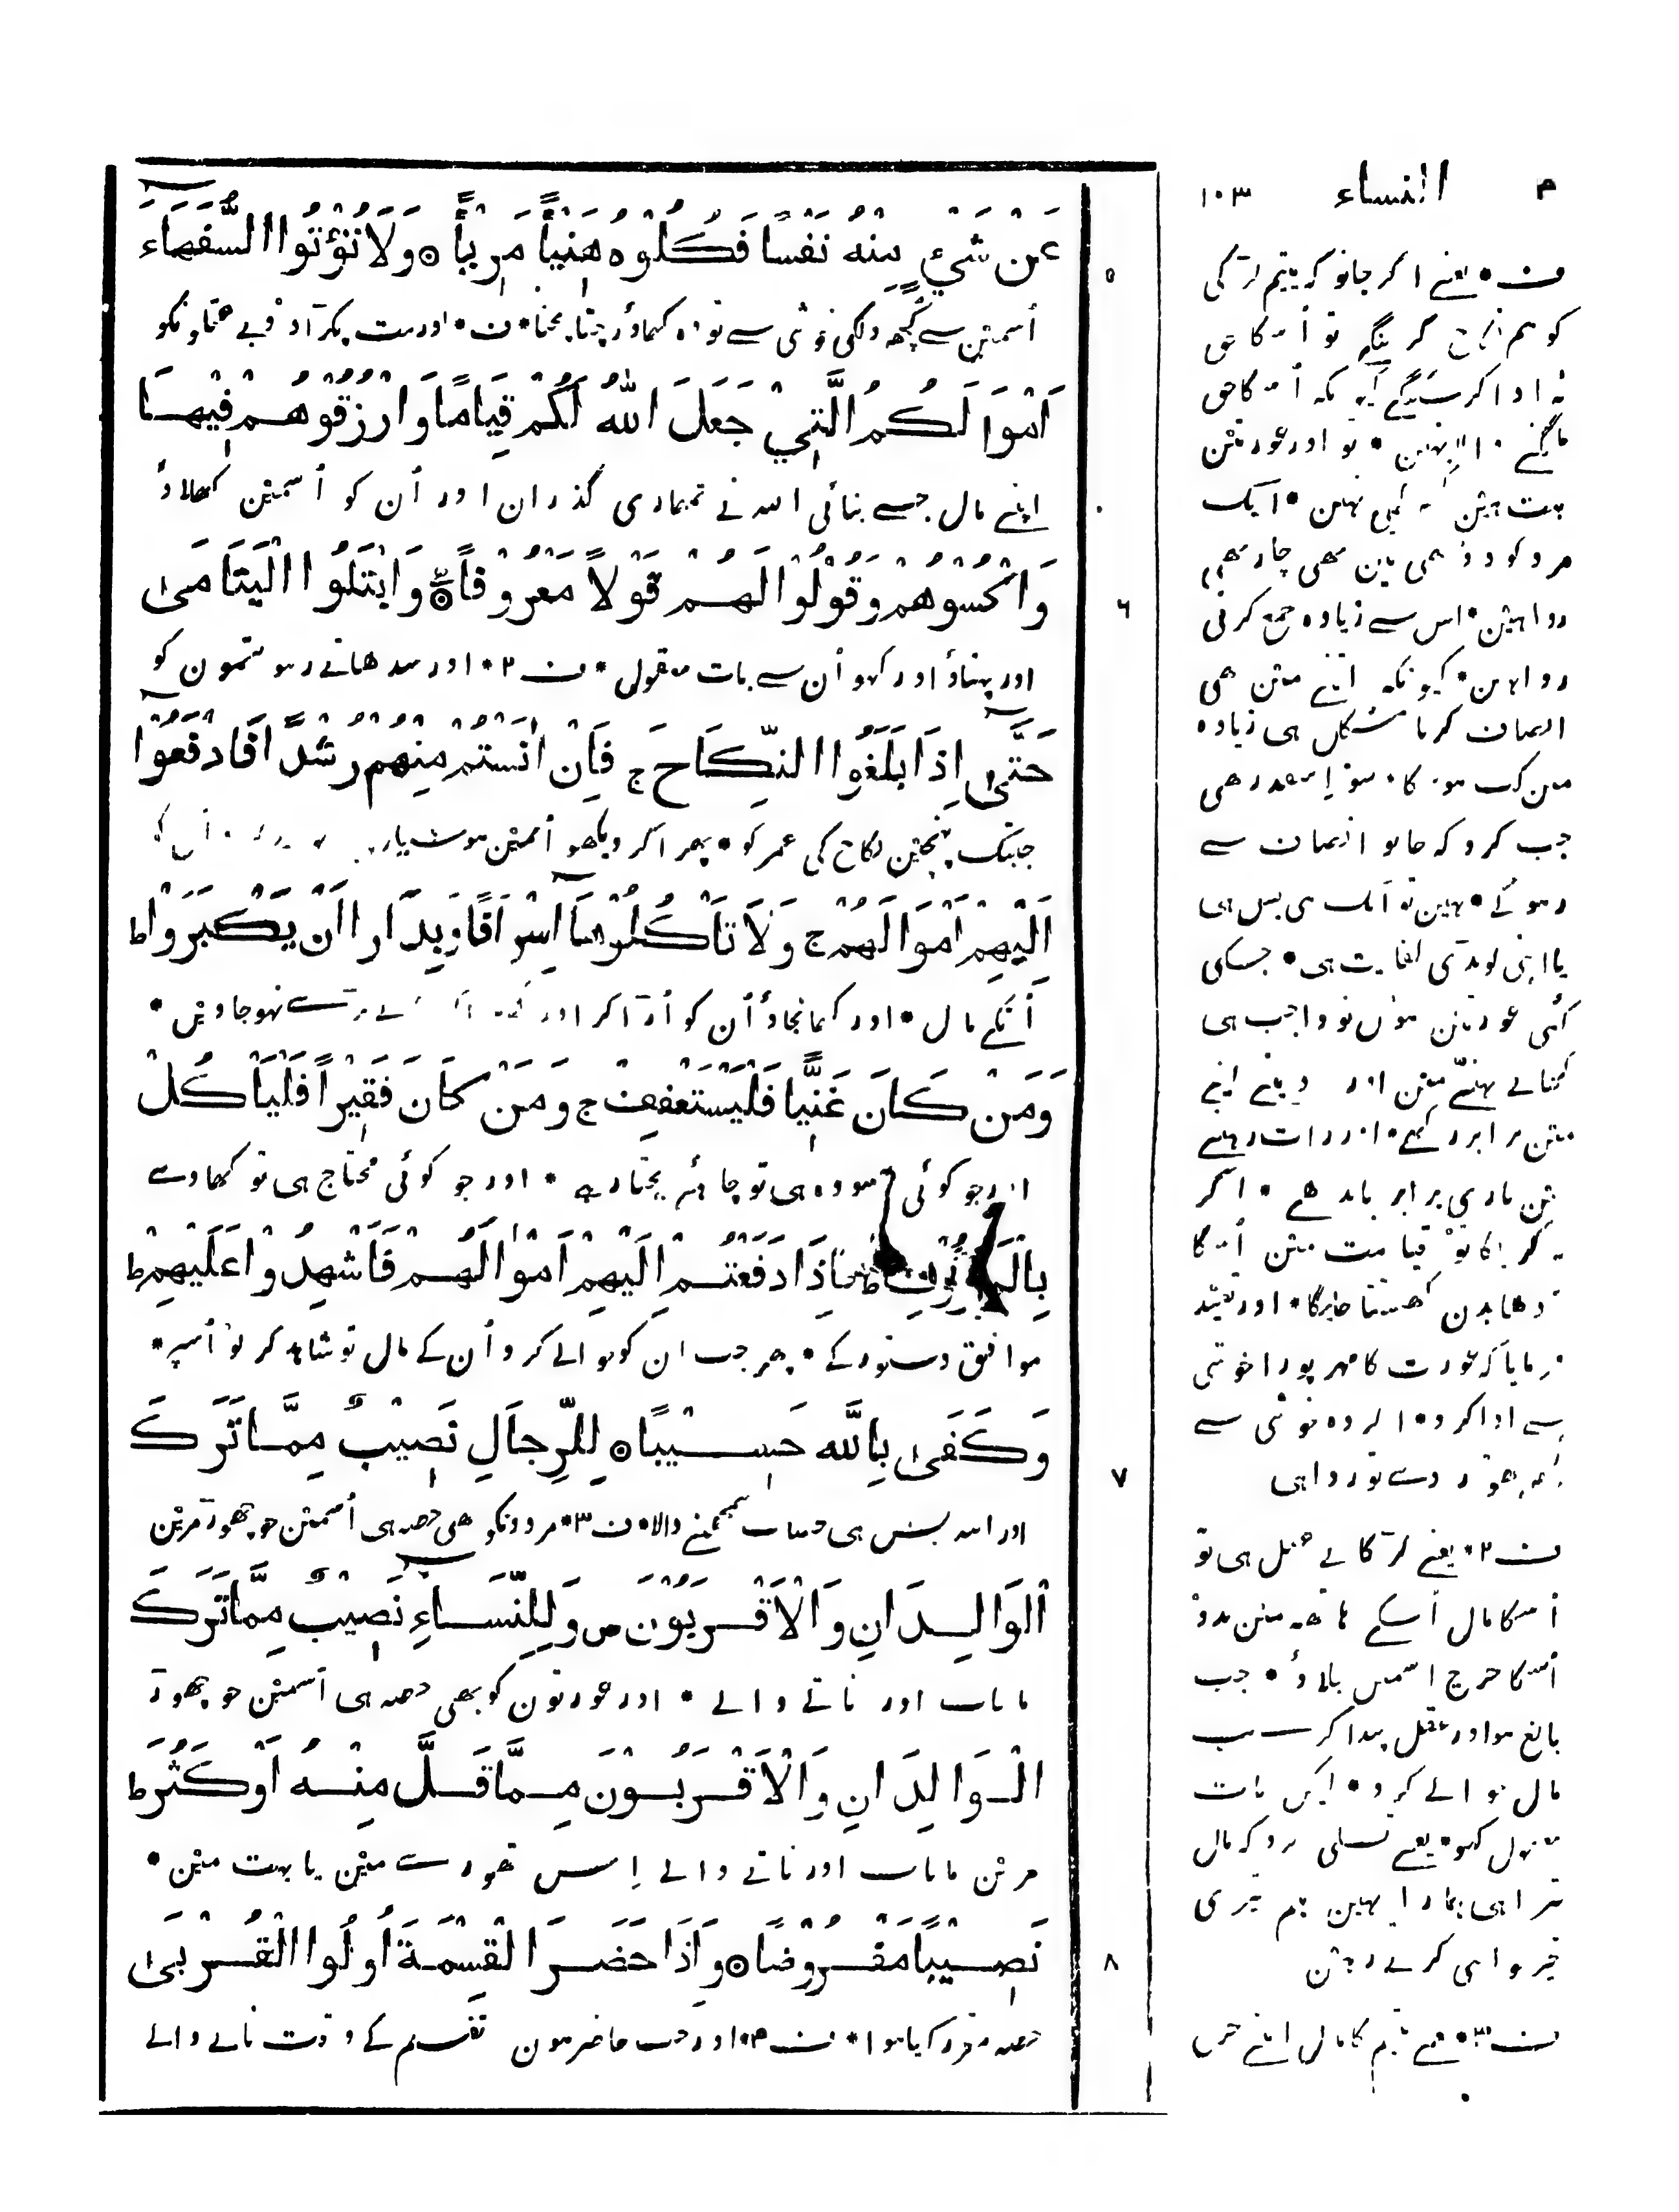 م النساء ١٠٣
عَنْ شَيْءٍ مِنْهُ نَفْسًا فَكُلُوهُ هَنِيْئًا مَرِيْئًا ۝ وَلَا تُؤْتُوا السُّفَهَاءَ
٥
اُسمین سے کچھ دلکی خوشی سے تو وہ کھاوٗ رچتا پچتا • ف • اور مت پکڑادو بے عقلونکو
اَمْوَالَكُمُ الَّتِيْ جَعَلَ اللّٰهُ لَكُمْ قِيَامًا وَارْزُقُوْهُمْ فِيْهَا
اپنے مال جسے بنائی اللہ نے تمہاری گذران اور اُن کو اُسمین کھلاوٗ
وَاكْسُوْهُمْ وَقُوْلُوْا لَهُمْ قَوْلًا مَعْرُوْفًا ۝ وَابْتَلُوا الْيَتَامَىٰ
٦
اور پہناوٗ اور کہو اُن سے بات معقول • ف ٢ • اور سدھاتے رہو یتیمون کو
حَتَّىٰ اِذَا بَلَغُوا النِّكَاحَ ج فَاِنْ اٰنَسْتُمْ مِنْهُمْ رُشْدًا فَادْفَعُوْا
جبتک پہنچین نکاح کی عمر کو • پھر اگر دیکھو اُنمین ہوشیاری
اِلَيْهِمْ اَمْوَالَهُمْ ج وَلَا تَاْكُلُوْهَا اِسْرَافًا وَبِدَارًا اَنْ يَكْبَرُوْا ط
اُنکے مال • اور کھا نجاوٗ اُن کو اُڑا کر اور بڑے نہو جاوین •
وَمَنْ كَانَ غَنِيًّا فَلْيَسْتَعْفِفْ ج وَمَنْ كَانَ فَقِيْرًا فَلْيَاْكُلْ
اور جو کوئی آسودہ ہی تو چاہئے بچتا رہے • اور جو کوئی محتاج ہی تو کھاوے
بِالْمَعْرُوْفِ ط فَاِذَا دَفَعْتُمْ اِلَيْهِمْ اَمْوَالَهُمْ فَاَشْهِدُوْا عَلَيْهِمْ ط
موافق دستور کے • پھر جب ان کو حوالے کرو اُن کے مال تو شاہد کر لو اُسپر •
وَكَفَىٰ بِاللّٰهِ حَسِيْبًا ۝ لِلرِّجَالِ نَصِيْبٌ مِمَّا تَرَكَ
٧
اور اللہ بس ہی حساب سمجھنے والا • ف ٣ • مردونکو بھی حصہ ہی اُسمین جو چھوڑ مرین
الْوَالِدَانِ وَالْاَقْرَبُوْنَ ص وَلِلنِّسَاءِ نَصِيْبٌ مِمَّا تَرَكَ
ما باپ اور ناتے والے • اور عورتون کو بھی حصہ ہی اُسمین جو چھوڑ
الْوَالِدَانِ وَالْاَقْرَبُوْنَ مِمَّا قَلَّ مِنْهُ اَوْ كَثُرَ ط
مرین ما باپ اور ناتے والے اِس تھوڑے مین یا بہت مین •
نَصِيْبًا مَفْرُوْضًا ۝ وَاِذَا حَضَرَ الْقِسْمَةَ اُولُوا الْقُرْبَىٰ
٨
حصہ مقرر کیا ہوا • ف ٤ • اور جب حاضر ہون تقسیم کے وقت ناتے والے
ف • یعنے اگر جانو کہ یتیم لڑکی
کو ہم نکاح کرینگے تو اُسکا حق
نہ ادا کر سکینگے کہ اُسکا حق
تو اور عورتین
بہت ہین کچھ کمی نہین • ایک
مرد کو دو بھی تین بھی چار بھی
روا ہین • اس سے زیادہ جمع کرنی
روا نہین • کیونکہ اتنے مین بھی
انصاف کرنا مشکل ہی زیادہ
مین کب ہو گا • سو اِسقدر بھی
جب کرو کہ جانو انصاف سے
رہو گے • نہین تو ایک ہی بس ہی
یا اپنی لونڈی کفایت ہی • جسکی
کئی عورتین ہون تو واجب ہی
کھانے پہننے مین اور دینے لینے
مین برابر رکھے • اور رات رہنے
مین باری برابر باندھے • اگر
نہ کریگا تو قیامت مین اُسکا
آدھا بدن گھسٹتا چلیگا • اور
فرمایا کہ عورت کا مہر پورا خوشی
سے ادا کرو • اگر وہ خوشی سے
کچھ چھوڑ دے تو روا ہی
ف ٢ • یعنے لڑکا بے عقل ہی تو
اُسکا مال اُسکے ہاتھ مین مت دو
اُسکا خرچ اسمین چلاوٗ • جب
بالغ ہو اور عقل پیدا کرے تب
مال حوالے کرو • لیکن بات
معقول کہو • یعنے تسلی کرو کہ مال
تیرا ہی ہمارا نہین ہم تیری
خیر خواہی کرتے رہین
ف ٣ • یعنے یتیم کا مال اپنے خرچ